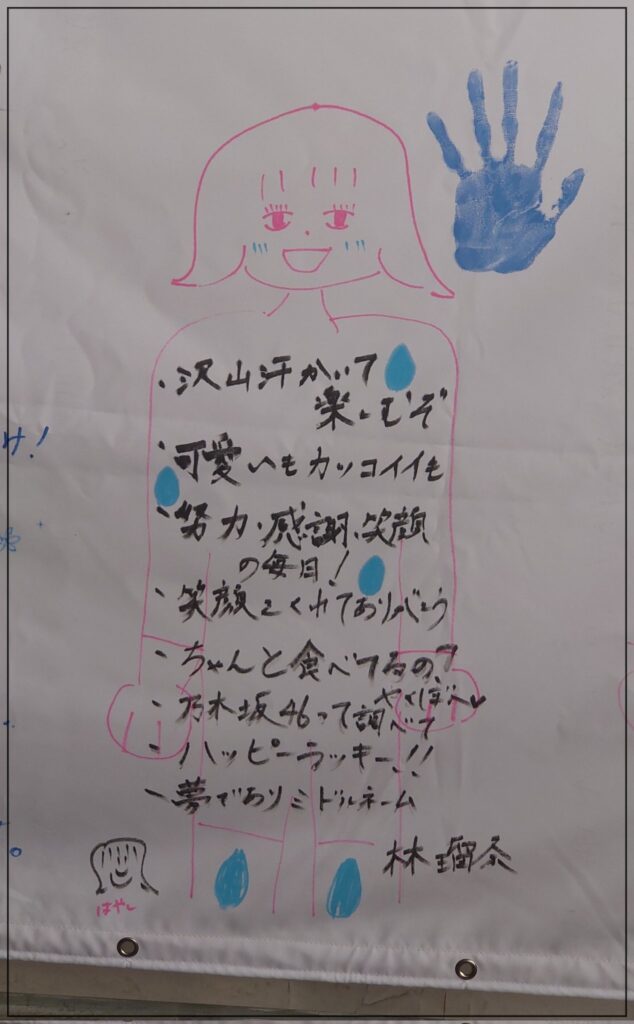 ・沢山汗かいて
楽しむぞ
・可愛いもカッコイイも
・努力・感謝、笑顔
の毎日！
・笑顔をくれてありがとう
・ちゃんと食べてるの？
・乃木坂46って調べて
やくぼへ♥
・ハッピーラッキー、!!
・夢でありミドルネーム
林瑠奈
はやし
け！